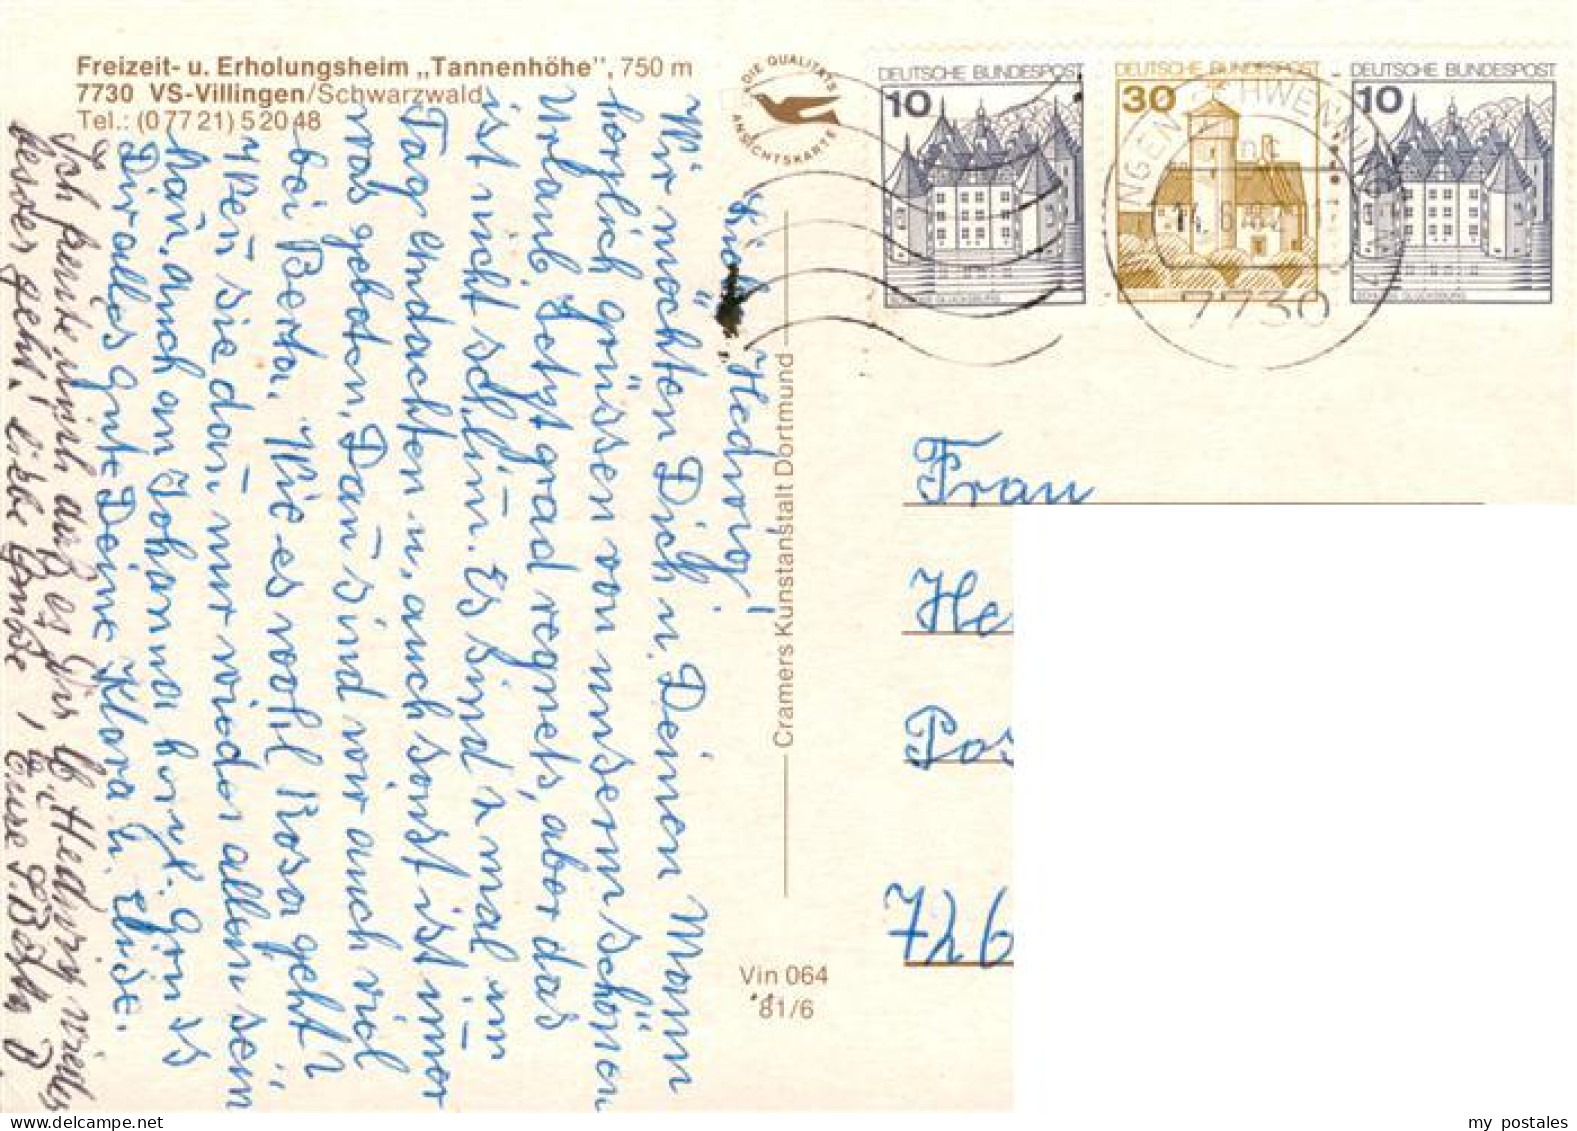 Freizeit- u. Erholungsheim „Tannenhöhe", 750 m
7730 VS-Villingen/Schwarzwald
Tel.: (0 77 21) 5 20 48
DIE QUALITÄTS
ANSICHTSKARTE
DEUTSCHE BUNDESPOST
10
SCHLOSS GLÜCKSBURG
DEUTSCHE BUNDESPOST
30
DEUTSCHE BUNDESPOST
10
SCHLOSS GLÜCKSBURG
7730
Liebe Hedwig!
Wir möchten Dich u. Deinen Mann
herzlich grüssen von unserm schönen
Urlaub. Jetzt grad regnets, aber das
ist nicht schlim̄. Es sind 2 mal im
Tag Andachten u. auch sonst ist im̄er
was geboten. Dan̄ sind wir auch viel
bei Berta. Wie es wohl Rosa geht?
Wen̄ sie dan̄ nur wieder allein sein
kan̄, auch an Johanna herzl. Grüsse
Dir alles gute Deine Klara u. Luise.
Ich freute mich daß es Dir, lb. Hedwig wieder
besser geht. liebe Grüße, Eure
Cramers Kunstanstalt Dortmund
Vin 064
81/6
Frau
He
Pos
726